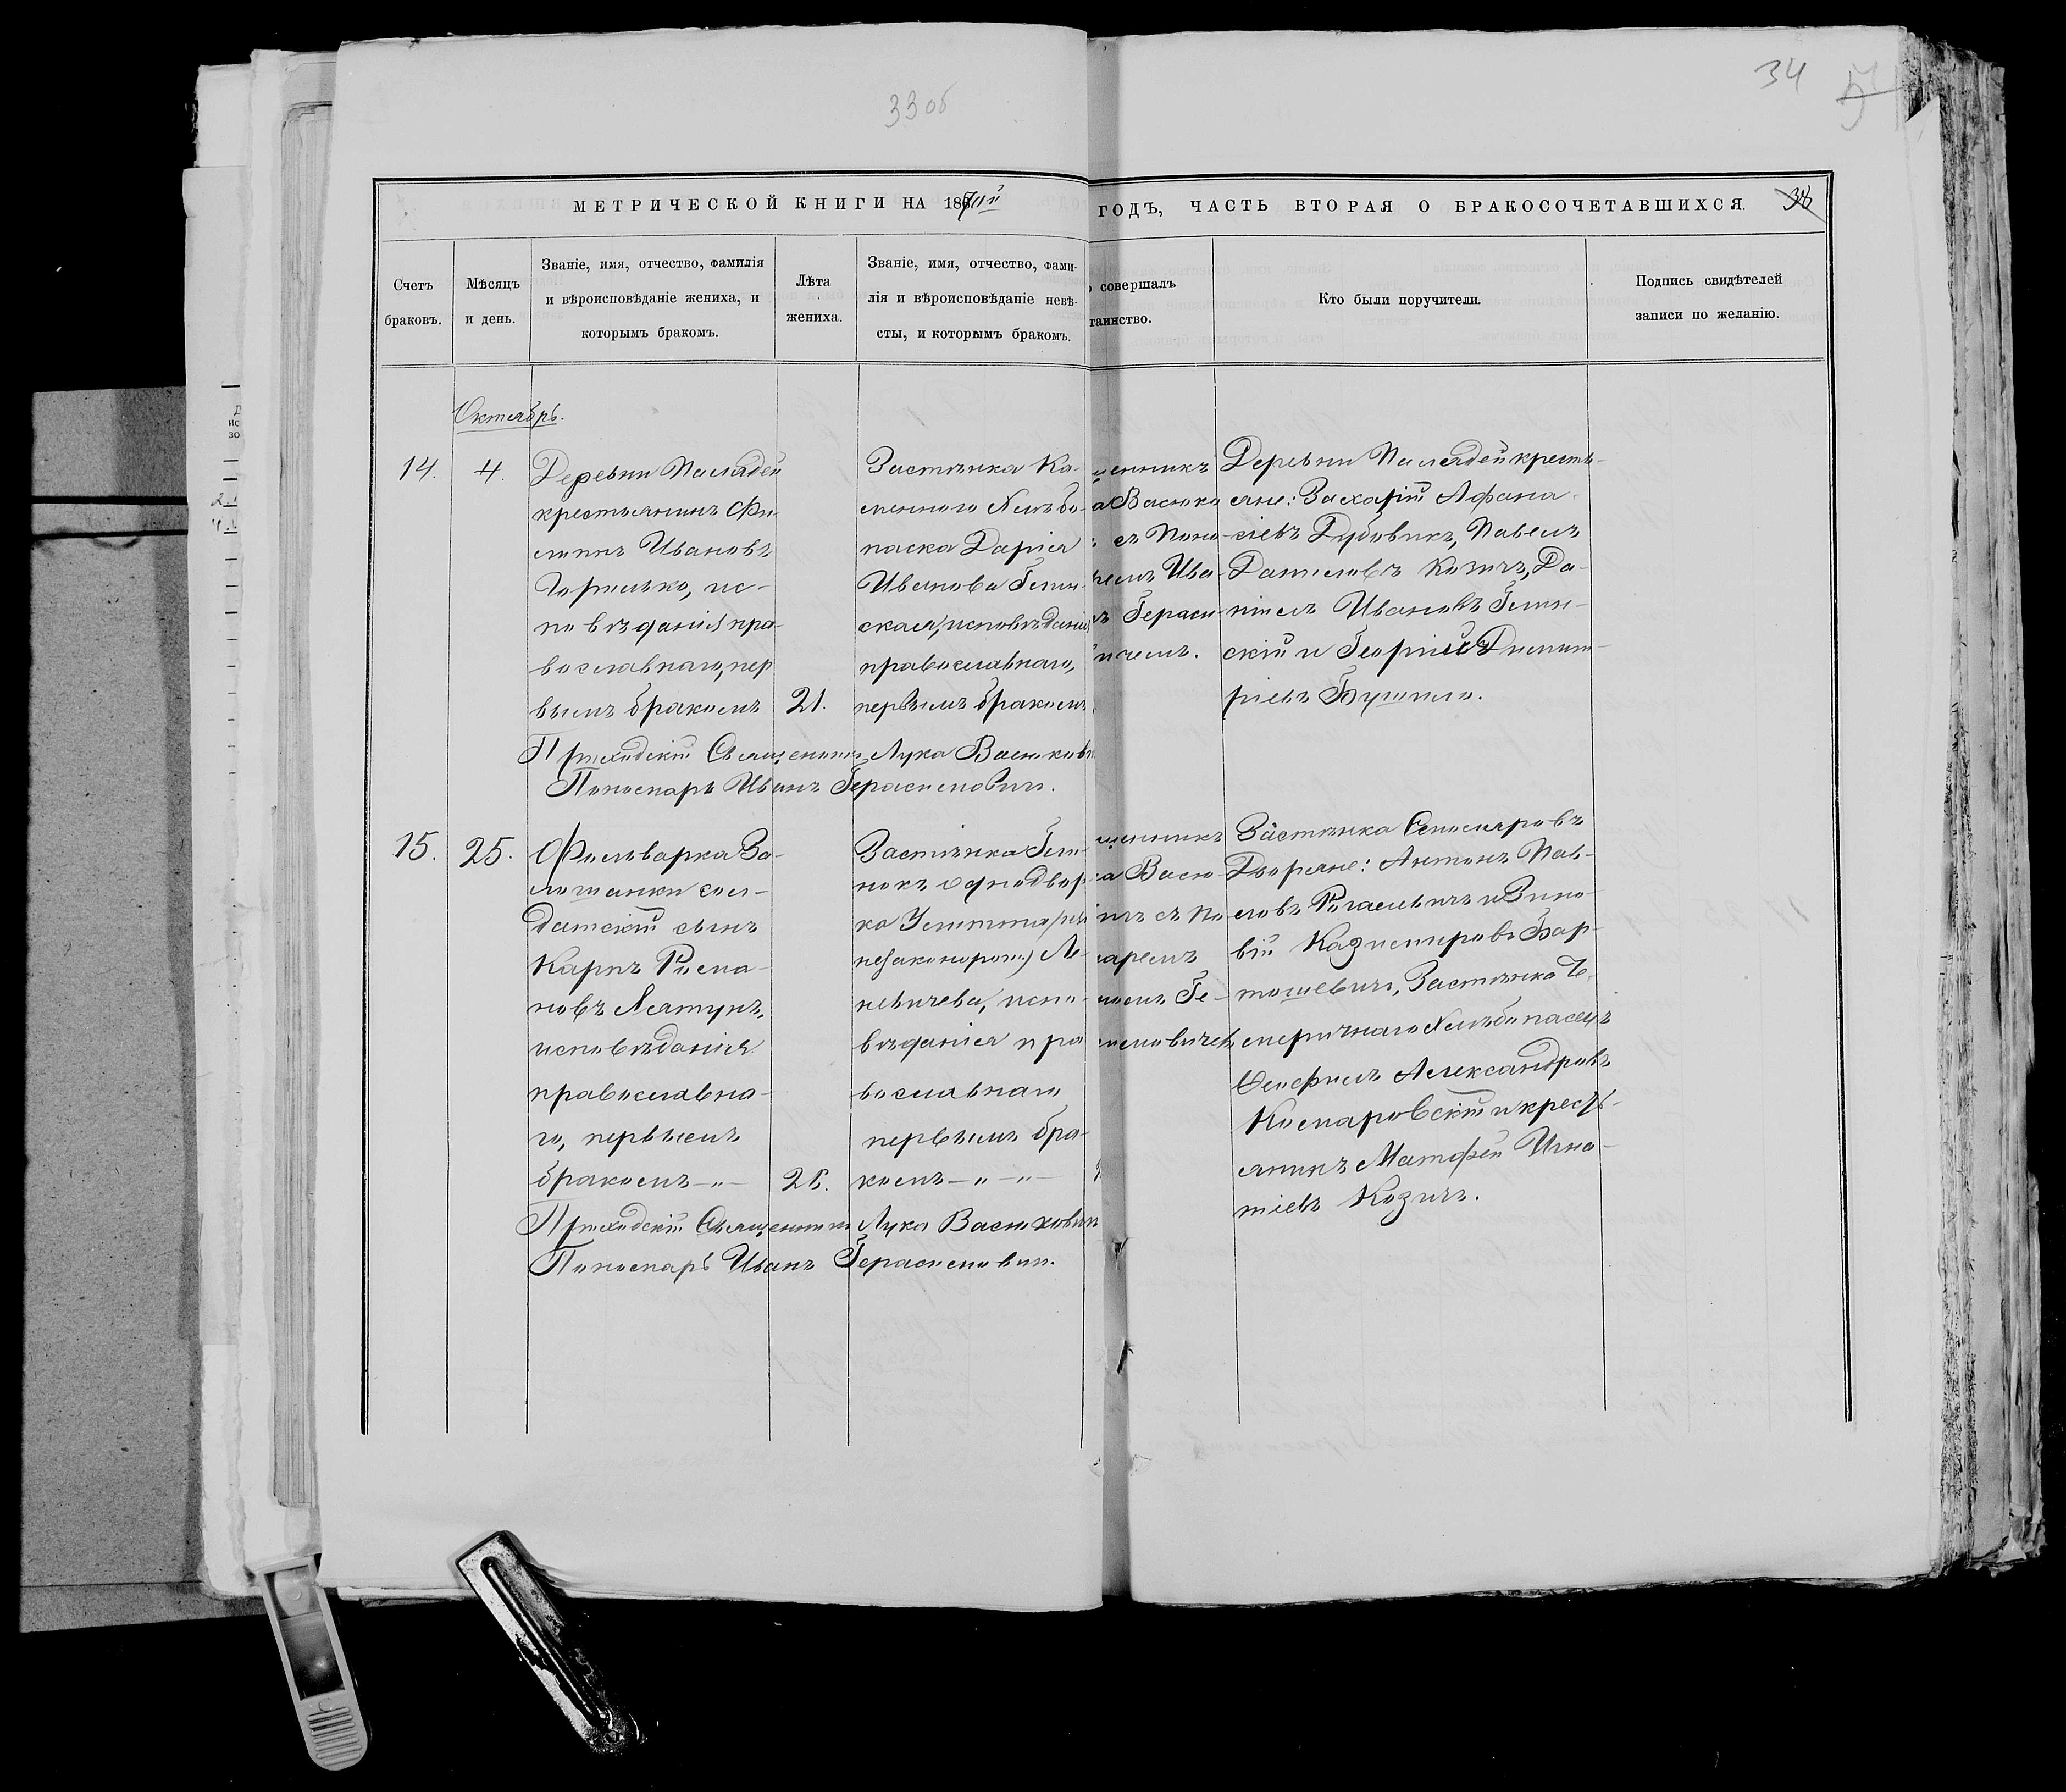 33 об
34
МЕТРИЧЕСКОЙ КНИГИ НА 1870й
ГОДЪ, ЧАСТЬ ВТОРАЯ О БРАКОСОЧЕТАВШИХСЯ.
Счетъ
браковъ.
Мѣсяцъ
и день.
Званіе, имя, отчество, фамилія
и вѣроисповѣданіе жениха, и
которымъ бракомъ.
Лѣта
жениха.
Званіе, имя, отчество, фами-
лія и вѣроисповѣданіе невѣ-
сты, и которымъ бракомъ.
совершалъ
таинство.
Кто были поручители.
Подпись свидѣтелей
записи по желанію.
Октябрь.
14.
4.
Деревни Палядей
крестьянинъ Фи-
липпъ Ивановъ
Горжко, ис-
повѣданія пра-
вославнаго, пер
вымъ бракомъ
21.
Застѣнка Ка-
меннаго Хлѣбо-
паска Дарія
Иванова Глин-
ская, исповѣданія
православнаго,
первымъ бракомъ
щенникъ
а Васюко
съ Поно
ремъ Ива-
ъ Гераси
чемъ.
Деревни Палядей кресть-
яне: Захарій Афана-
сіевъ Дубовикъ, Павелъ
Даниловъ Козичъ, Да-
ніилъ Ивановъ Глин-
скій и Георгій Димит-
ріевъ Бушило.
Приходскій Священникъ Лука Васюкович
Пономарь Иванъ Герасимович.
15.
25.
Фольварка За-
лошанки сол-
датскій сынъ
Карпъ Рома-
новъ Лятунъ,
исповѣданія
православна-
го, первымъ
бракомъ —"—
21.
Застѣнка Гли-
нокъ однодвор
ка
незаконорож.) Ле-
невичева, испо-
вѣданія пра
вославнаго
первымъ бра-
комъ —"—"—
щенникъ
а Васю-
чъ съ По
маремъ
номъ Ге-
симовичемъ
Застѣнка
Дворяне: Антонъ Пав-
ловъ Рогалевичъ и Зино-
вій Казимировъ Бар-
тошевич, Застѣнка Те-
меричнаго Хлѣбопасецъ
Теофилъ Александровъ
Комаровскій и кресть-
янинъ Матфей Игна-
тіевъ Козичъ.
Приходскій Священникъ Лука Васюкович
Пономарь Иванъ Герасимович.